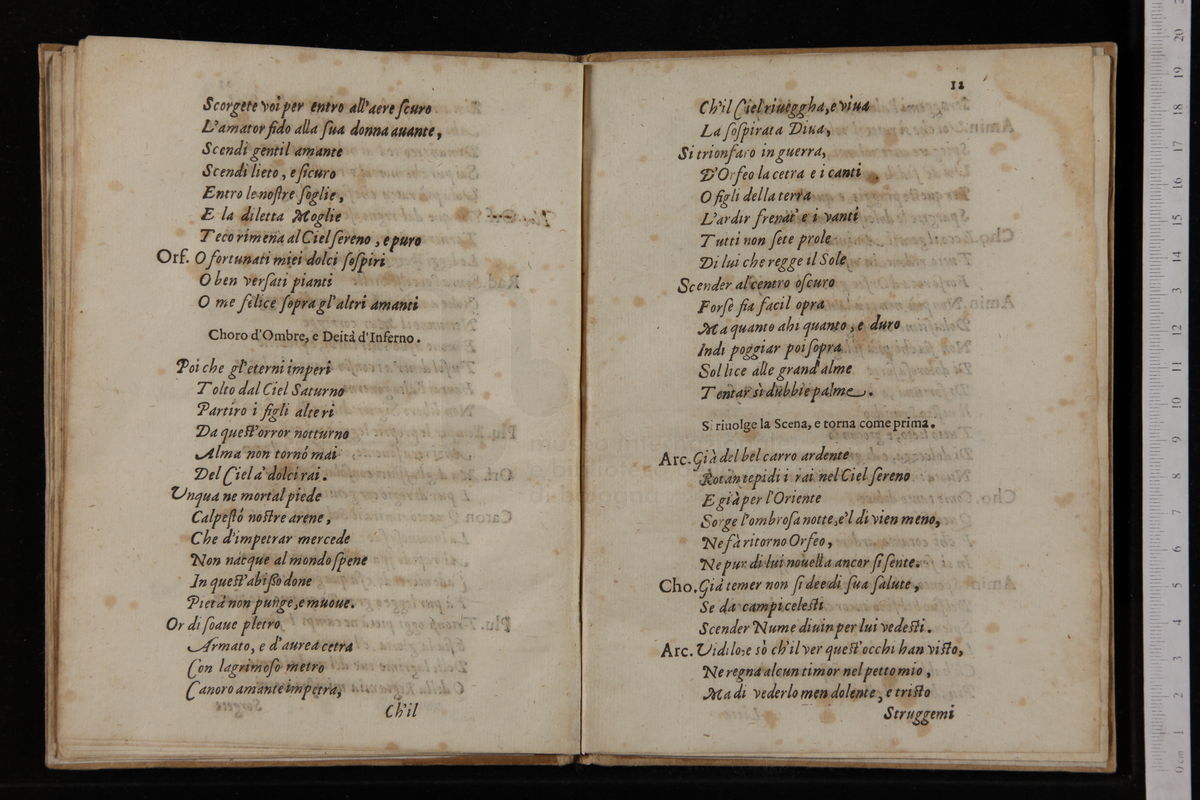 Scorgete voi per entro all'aere ſcuro
L'amator fido alla ſua donna auante,
Scendi gentil amante
Scendi lieto, e ſicuro
Entro le noſtre ſoglie,
E la diletta Moglie
Teco rimena al Ciel ſereno, e puro
Orf. O fortunati miei dolci ſoſpiri
O ben verſati pianti
O me felice ſopra gl'altri amanti
Choro d'Ombre, e Deità d'Inferno.
Poi che gl'eterni imperi
Tolto dal Ciel Saturno
Partiro i figli alteri
Da queſt'orror notturno
Alma non tornó mai
Del Ciel à dolci rai.
Unqua ne mortal piede
Calpeſtó noſtre arene,
Che d'impetrar mercede
Non nacque al mondo ſpene
In queſt'abiſſo done
Pietà non punge, e muoue.
Or di ſoaue pletro
Armato, e d'aurea cetra
Con lagrimoſo metro
Canoro amante impetra,
Ch'il
12
Ch'il Ciel riueggha, e viua
La ſoſpirata Diua,
Si trionfaro in guerra,
D'Orfeo la cetra e i canti
O figli della terra
L'ardir frenat' e i vanti
Tutti non ſete prole
Di lui che regge il Sole
Scender al centro oſcuro
Forſe fia facil opra
Ma quanto ahi quanto, e duro
Indi poggiar poi ſopra
Sol lice alle grand'alme
Tentar sì dubbie palme.
Si riuolge la Scena, e torna come prima.
Arc. Già del bel carro ardente
Rotan tepidi i rai nel Ciel ſereno
E già per l'Oriente
Sorge l'ombroſa notte, e'l dì vien meno,
Ne fà ritorno Orfeo,
Ne pur di lui nouella ancor ſi ſente.
Cho. Già temer non ſi dee di ſua ſalute,
Se da campi celeſti
Scender Nume diuin per lui vedeſti.
Arc. Vidilo: e sò ch'il ver queſt'occhi han viſto,
Ne regna alcun timor nel petto mio,
Ma di vederlo men dolente, e triſto
Struggemi